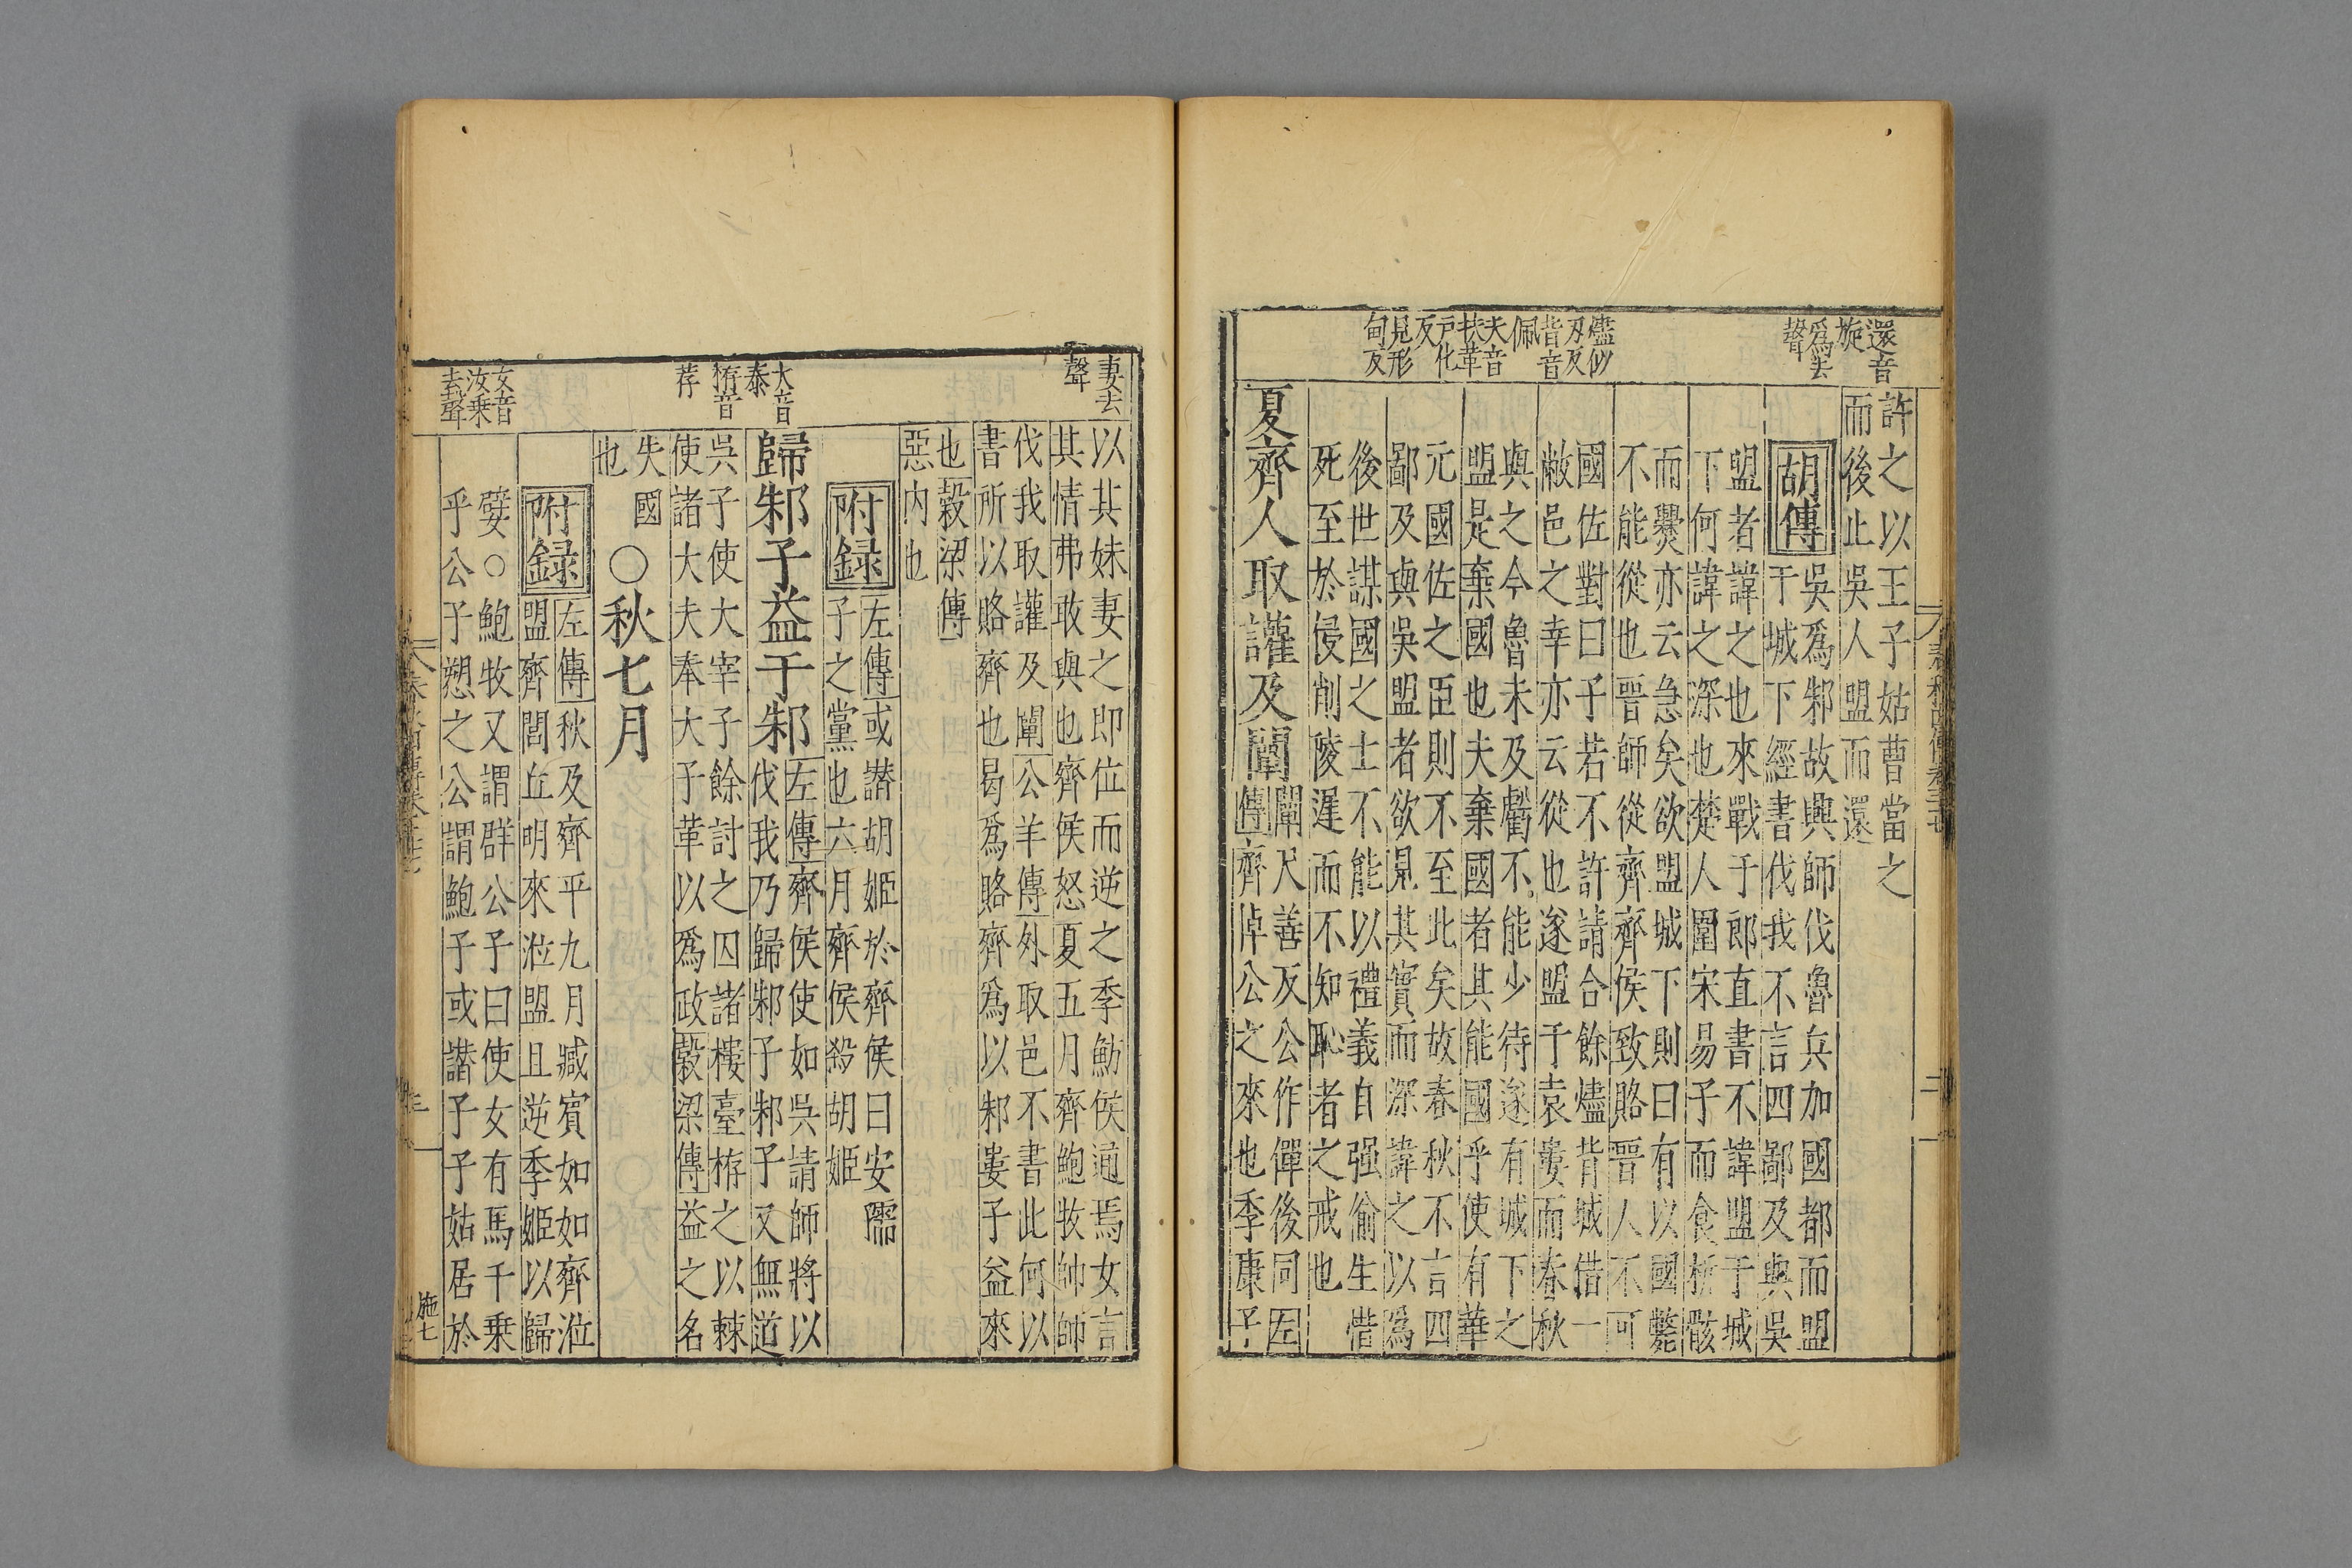 還音
旋
爲去
聲
燼似
刃反
背音
佩
夫音
扶華
戸化
反
見形
甸反
許之以王子姑曹當之
而後止吳人盟而還
胡傳
吳爲邾故興師伐魯兵加國都而盟
于城下經書伐我不言四鄙及與吳
盟者諱之也來戰于郎直書不諱盟于城
下何諱之深也楚人圍宋易子而食析骸
而爨亦云急矣欲盟城下則曰有以國斃
不能從也晉師從齊齊侯致賂晉人不可
國佐對曰子若不許請合餘燼背城借一
敝邑之幸亦云從也遂盟于袁婁而春秋
與之今魯未及虧不能少待遂有城下之
盟是棄國也夫棄國者其能國乎使有華
元國佐之臣則不至此矣故春秋不言四
鄙及與吳盟者欲見其實而深諱之以爲
後世謀國之士不能以禮義自强偷生惜
死至於侵削陵遲而不知恥者之戒也
夏齊人取讙及闡
闡尺善反公作僤後同左
傳齊悼公之來也季康子
妻去
聲
大音
泰
栫音
荐
女音
汝乗
去聲
以其妹妻之即位而逆之季魴侯通焉女言
其情弗敢與也齊侯怒夏五月齊鮑牧帥師
伐我取讙及闡公羊傳外取邑不書此何以
書所以賂齊也曷爲賂齊爲以邾婁子益來
也穀梁傳
惡内也
附録
左傳或譖胡姬於齊侯曰安孺
子之黨也六月齊侯殺胡姬
歸邾子益于邾
左傳齊侯使如吳請師將以
伐我乃歸邾子邾子又無道
吳子使大宰子餘討之囚諸樓臺栫之以棘
使諸大夫奉大子革以爲政穀梁傳益之名
失國
也
○秋七月
附録
左傳秋及齊平九月臧賓如如齊涖
盟齊閭丘明來涖盟且逆季姬以歸
嬖○鮑牧又謂群公子曰使女有馬千乗
乎公子愬之公謂鮑子或譖子子姑居於
施七